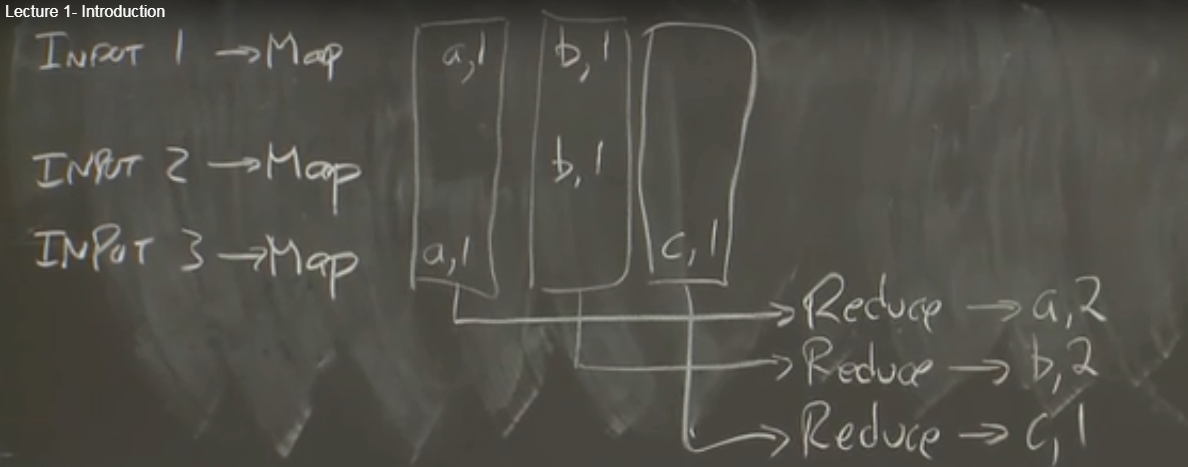 Lecture 1- Introduction
INPUT 1 → Map a,1 b,1
INPUT 2 → Map b,1
INPUT 3 → Map a,1 c,1
Reduce → a,2
Reduce → b,2
Reduce → c,1